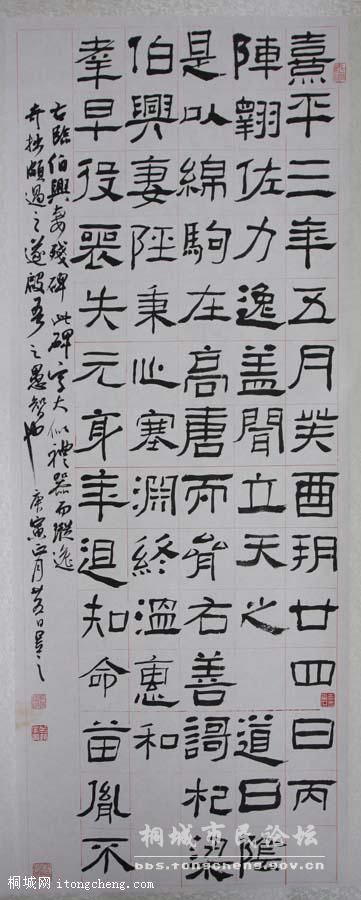 熹平三年五月癸酉玥廿四日丙
陣翱佐力逸盖聞立天之道曰陰
是以綿駒在高唐而育右善謌杞梁
伯興妻陘秉心塞淵終溫惠和
孝早役喪失元身年迌知命苗胤不
右臨伯興妻殘碑此碑字大似禮器而縱逸
奇拙頗過之遂啟吾之愚智也 庚寅正月廿 日 之
桐城市民论坛
bbs.tongcheng.gov.cn
桐城网 itongcheng.com